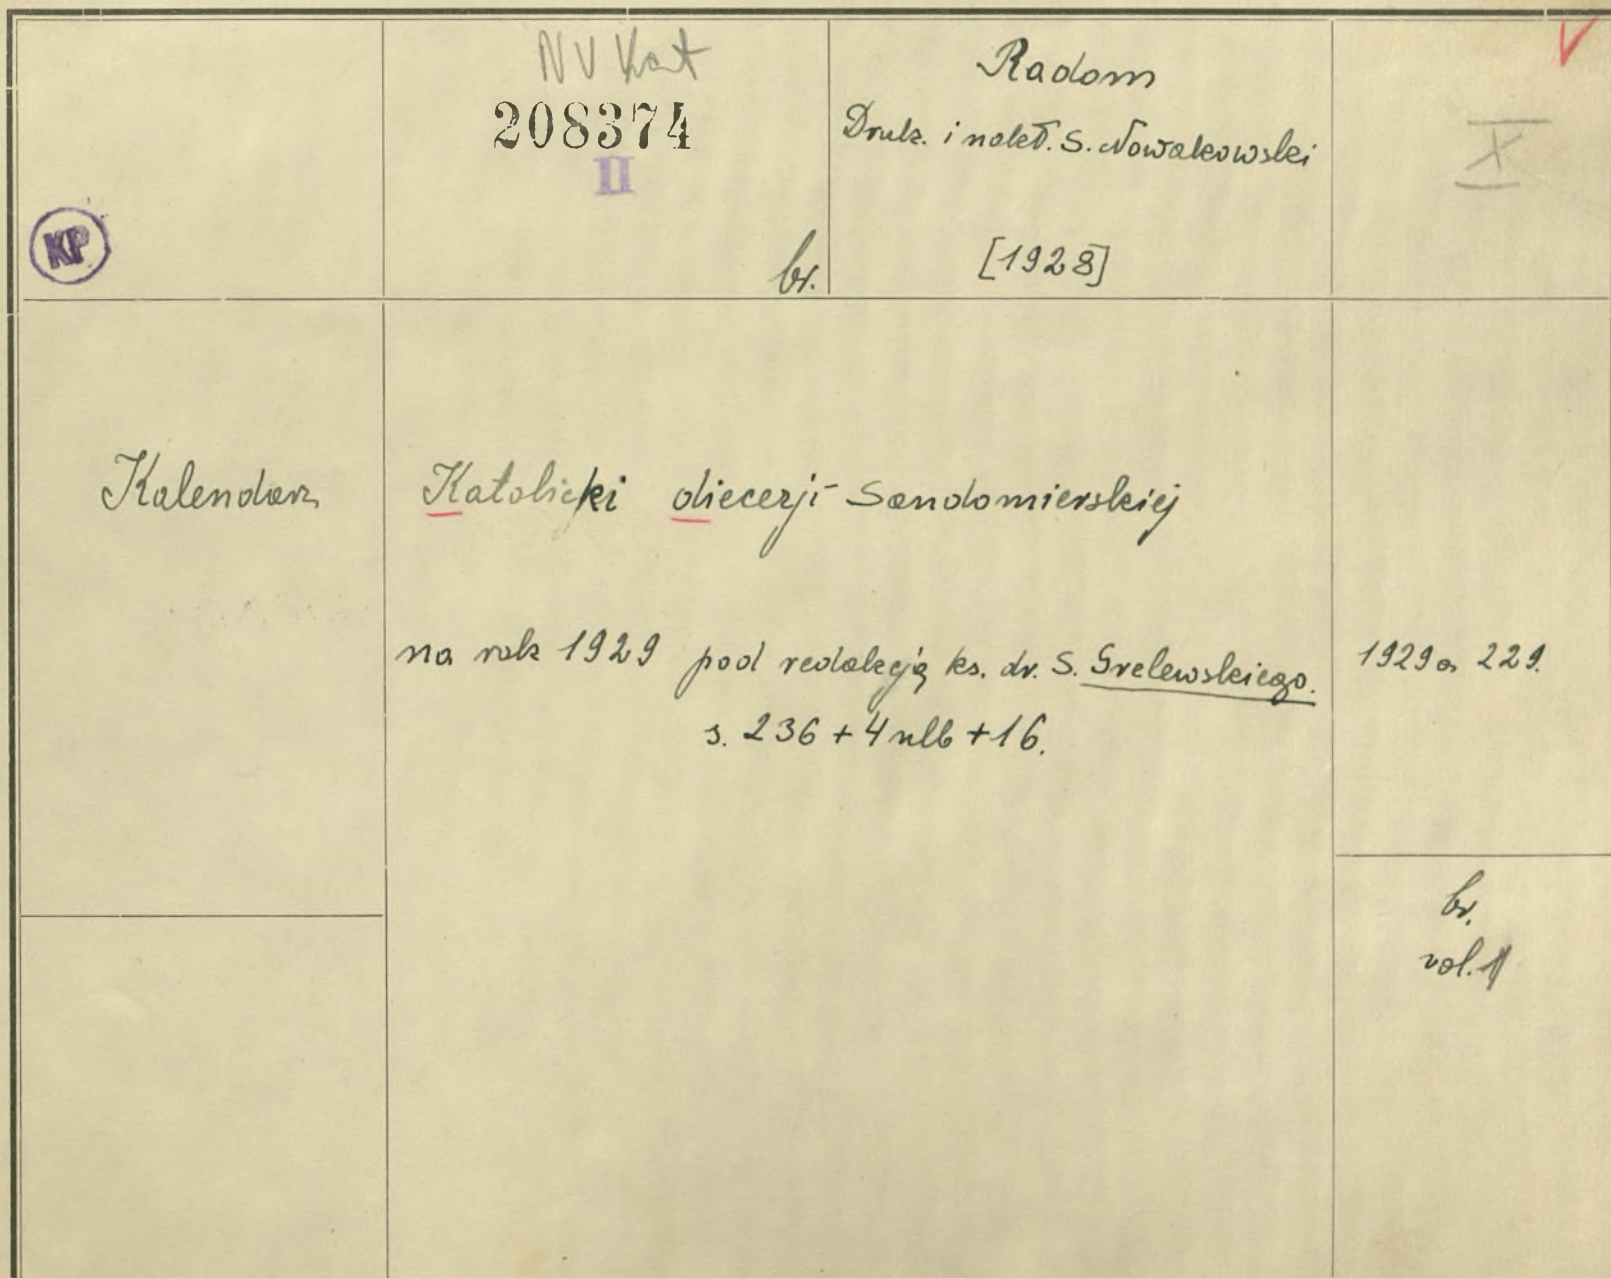 NV Kat
208374
II
br.
Radom
Druk. i nakł. S. Nowakowski
[1928]
X
KP
Kalendarz
Katolicki diecezji Sandomierskiej
na rok 1929 pod redakcją ks. dr. S. Grelewskiego.
s. 236 + 4 nlb + 16.
1929 a 229.
br.
vol. 1